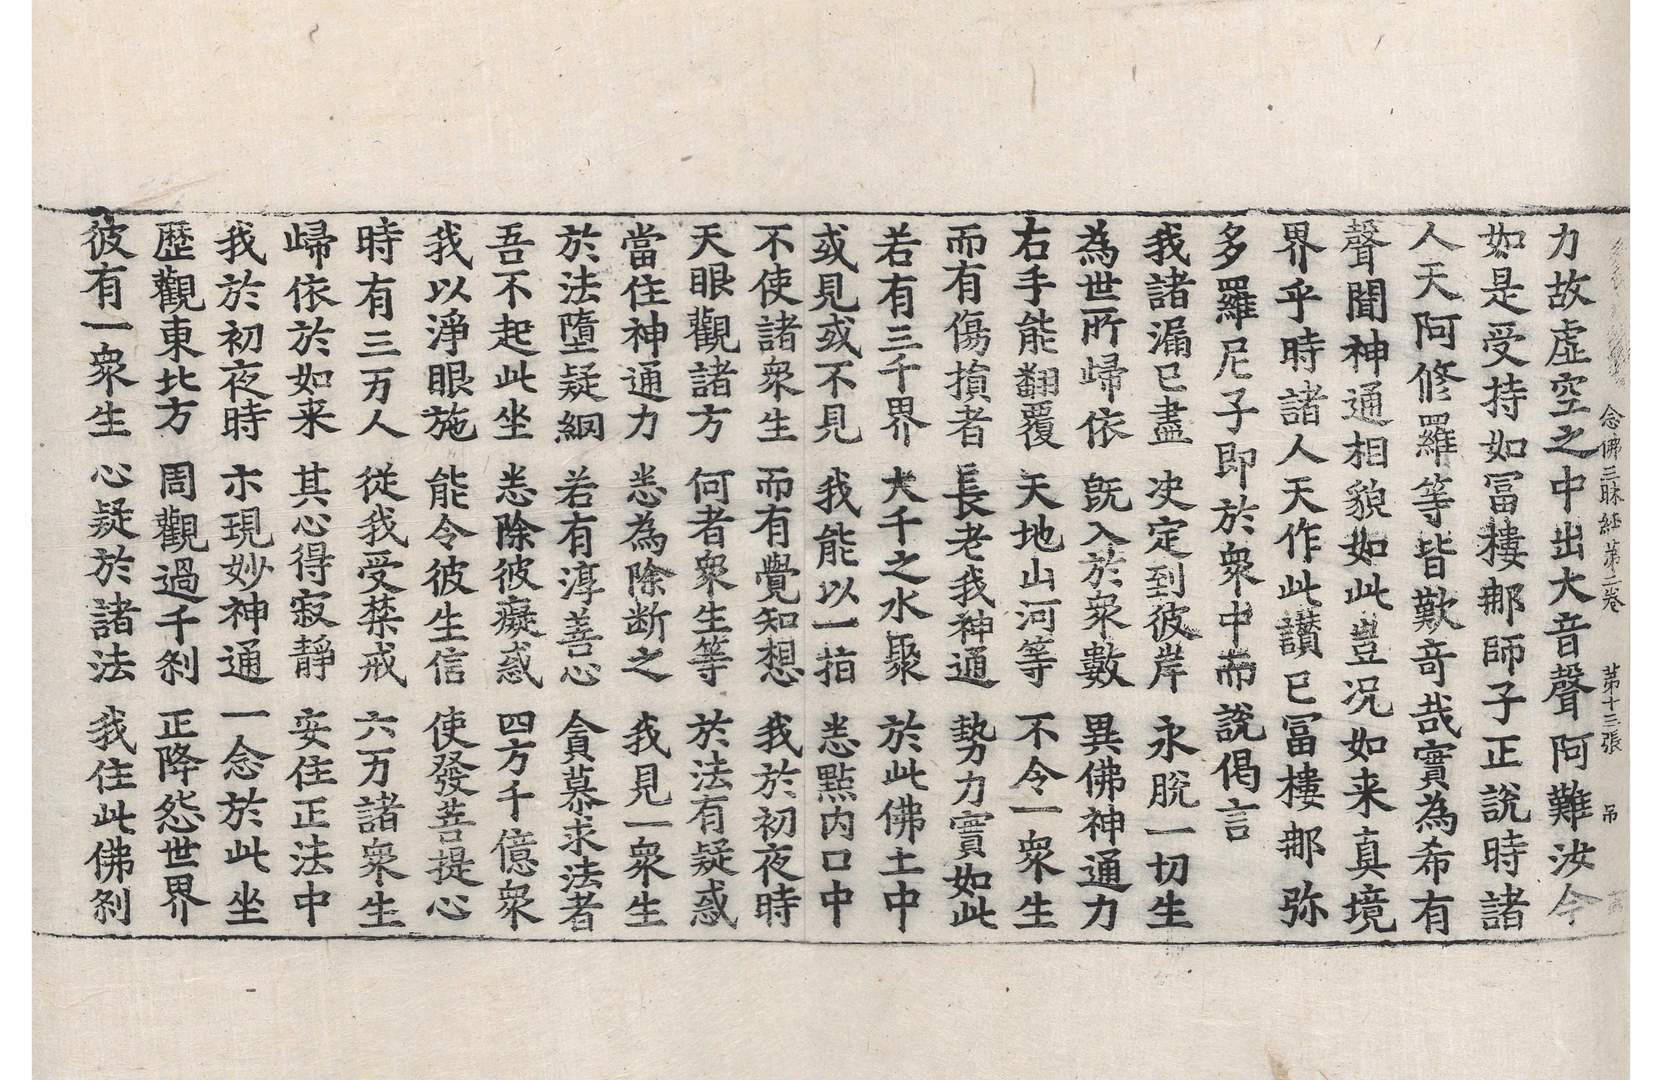 念佛三昧經第二卷 第十三張 吊
力故虛空之中出大音聲阿難汝今
如是受持如冨樓那師子正說時諸
人天阿修羅等皆歎竒哉實為希有
聲聞神通相貌如此豈况如来真境
界乎時諸人天作此讃已冨樓那弥
多羅尼子即於衆中而說偈言
我諸漏已盡 决定到彼岸 永脫一切生
為世所歸依 旣入於衆數 異佛神通力
右手能翻覆 天地山河等 不令一衆生
而有傷損者 長老我神通 勢力實如此
若有三千界 大千之水聚 於此佛土中
或見或不見 我能以一指 悉點内口中
不使諸衆生 而有覺知想 我於初夜時
天眼觀諸方 何者衆生等 於法有疑惑
當住神通力 悉為除断之 我見一衆生
於法墮疑網 若有淳善心 貪慕求法者
吾不起此坐 悉除彼癡惑 四方千億衆
我以淨眼施 能令彼生信 使發菩提心
時有三万人 從我受禁戒 六万諸衆生
歸依於如来 其心得寂靜 安住正法中
我於初夜時 亦現妙神通 一念於此坐
歷觀東北方 周觀過千刹 正降怨世界
彼有一衆生 心疑於諸法 我住此佛刹